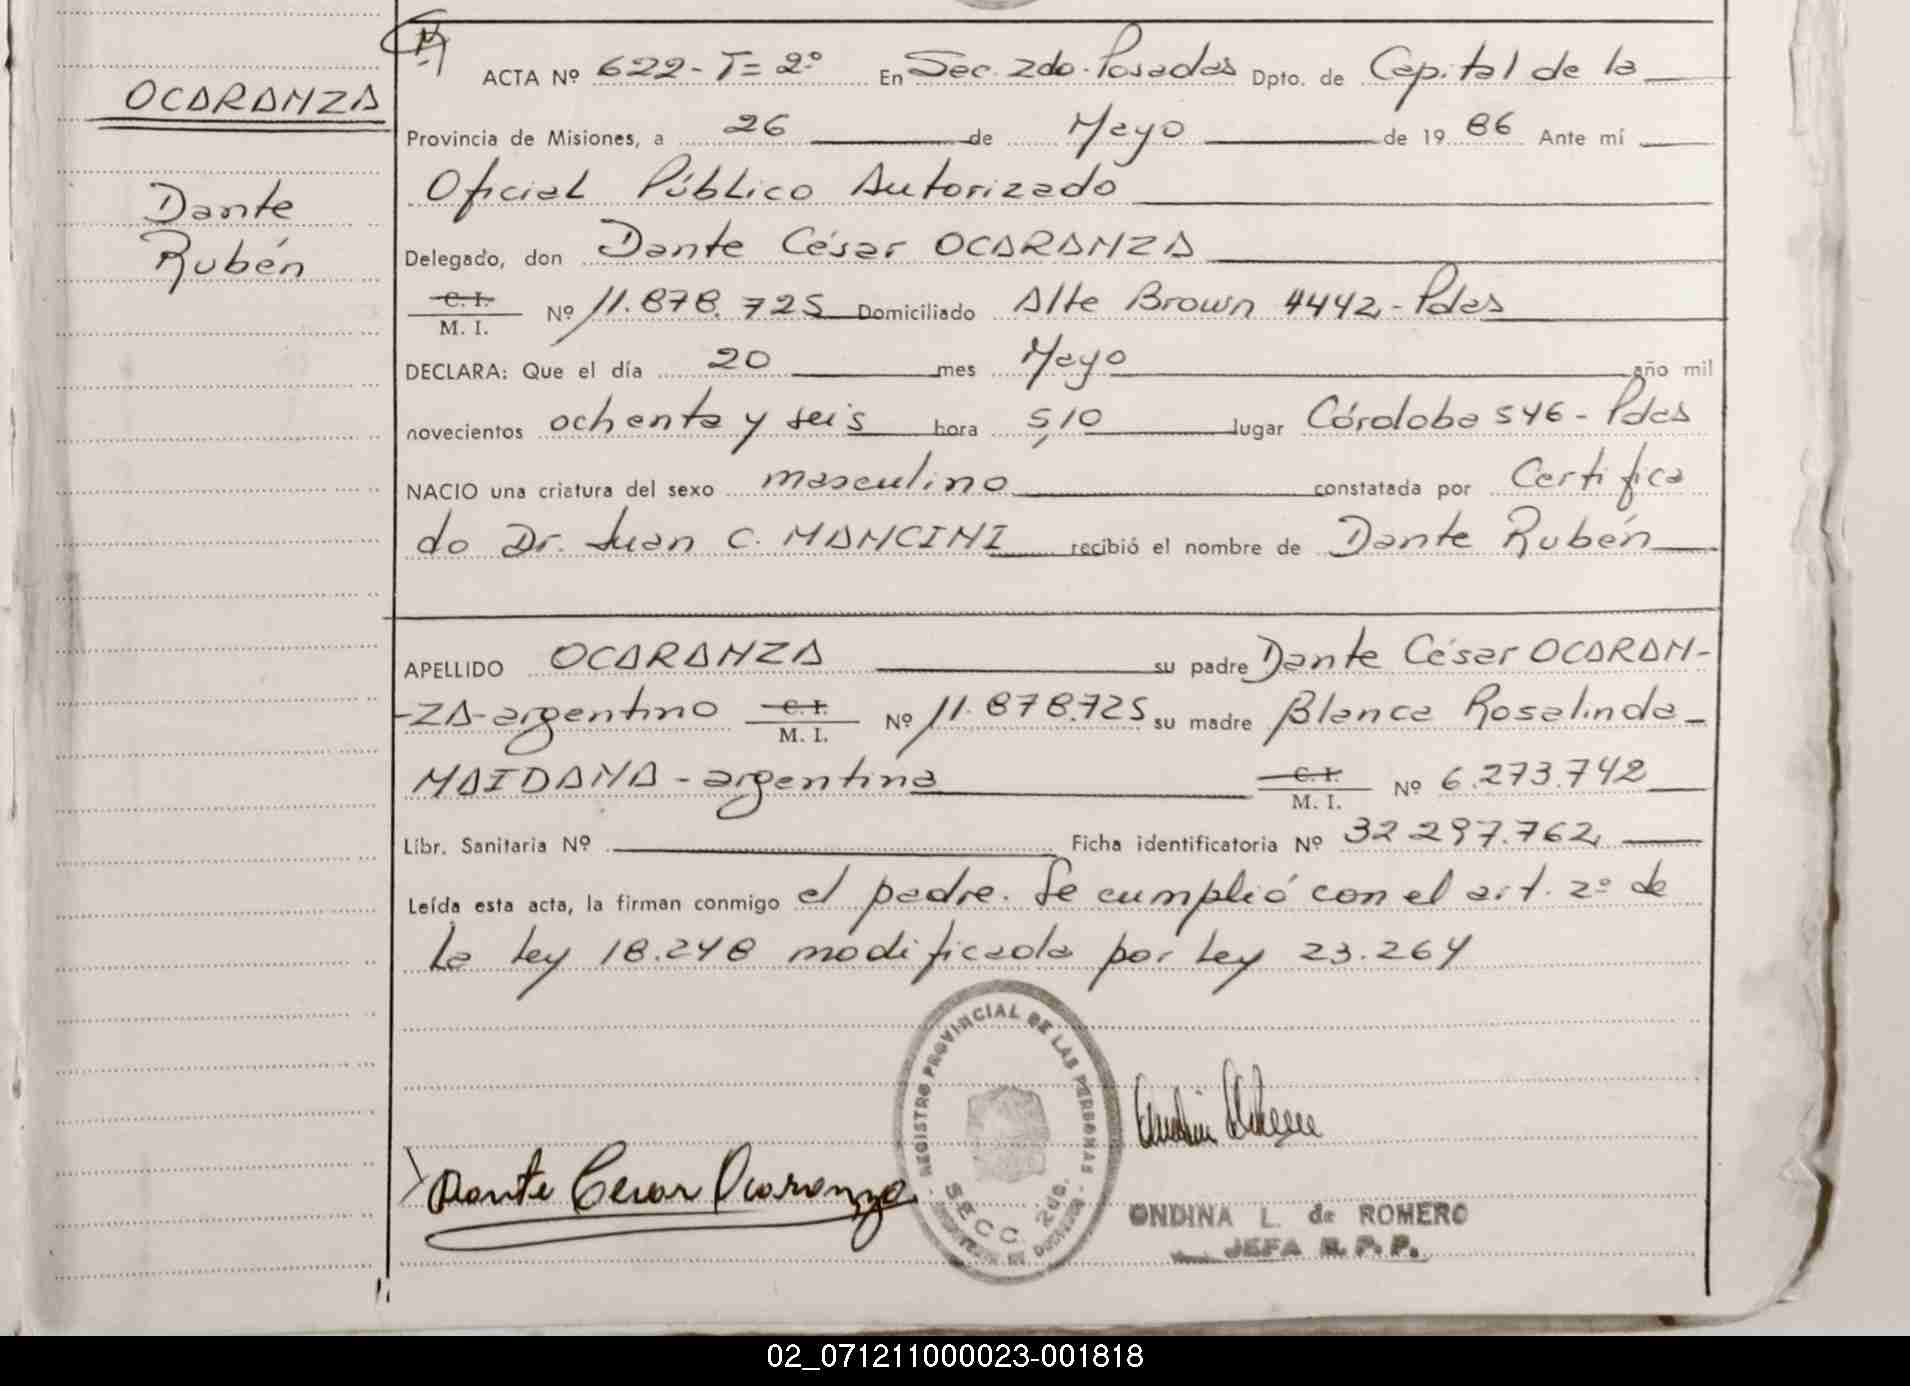 OCARANZA
Dante
Rubén
ACTA Nº 622-T=2º En Sec. 2do-Posadas Dpto. de Capital de la
Provincia de Misiones, a 26 de Mayo de 19 86 Ante mí
Oficial Público Autorizado
Delegado, don Dante César OCARANZA
C. I.
M. I. Nº 11.878.725 Domiciliado Alte Brown 4442,-Pdas
DECLARA: Que el día 20 mes Mayo año mil
novecientos ochenta y seis hora 5,10 lugar Córdoba 546-Pdas
NACIO una criatura del sexo masculino constatada por Certifica
do Dr. Juan C. MANCINI recibió el nombre de Dante Rubén
APELLIDO OCARANZA su padre Dante César OCARAN-
-ZA-argentino C. I. M. I. Nº 11.878.725 su madre Blanca Rosalinda
MAIDANA - argentina C. I. M. I. Nº 6.273.742
Libr. Sanitaria Nº Ficha identificatoria Nº 32 297.762,
Leída esta acta, la firman conmigo el padre. Se cumplió con el art. 2º de
la ley 18.248 modificada por Ley 23.264
REGISTRO PROVINCIAL DE LAS PERSONAS
SECC. 2da.
Dante Cesar Ocaranza
ONDINA L. de ROMERO
JEFA R. P. P.
02_071211000023-001818